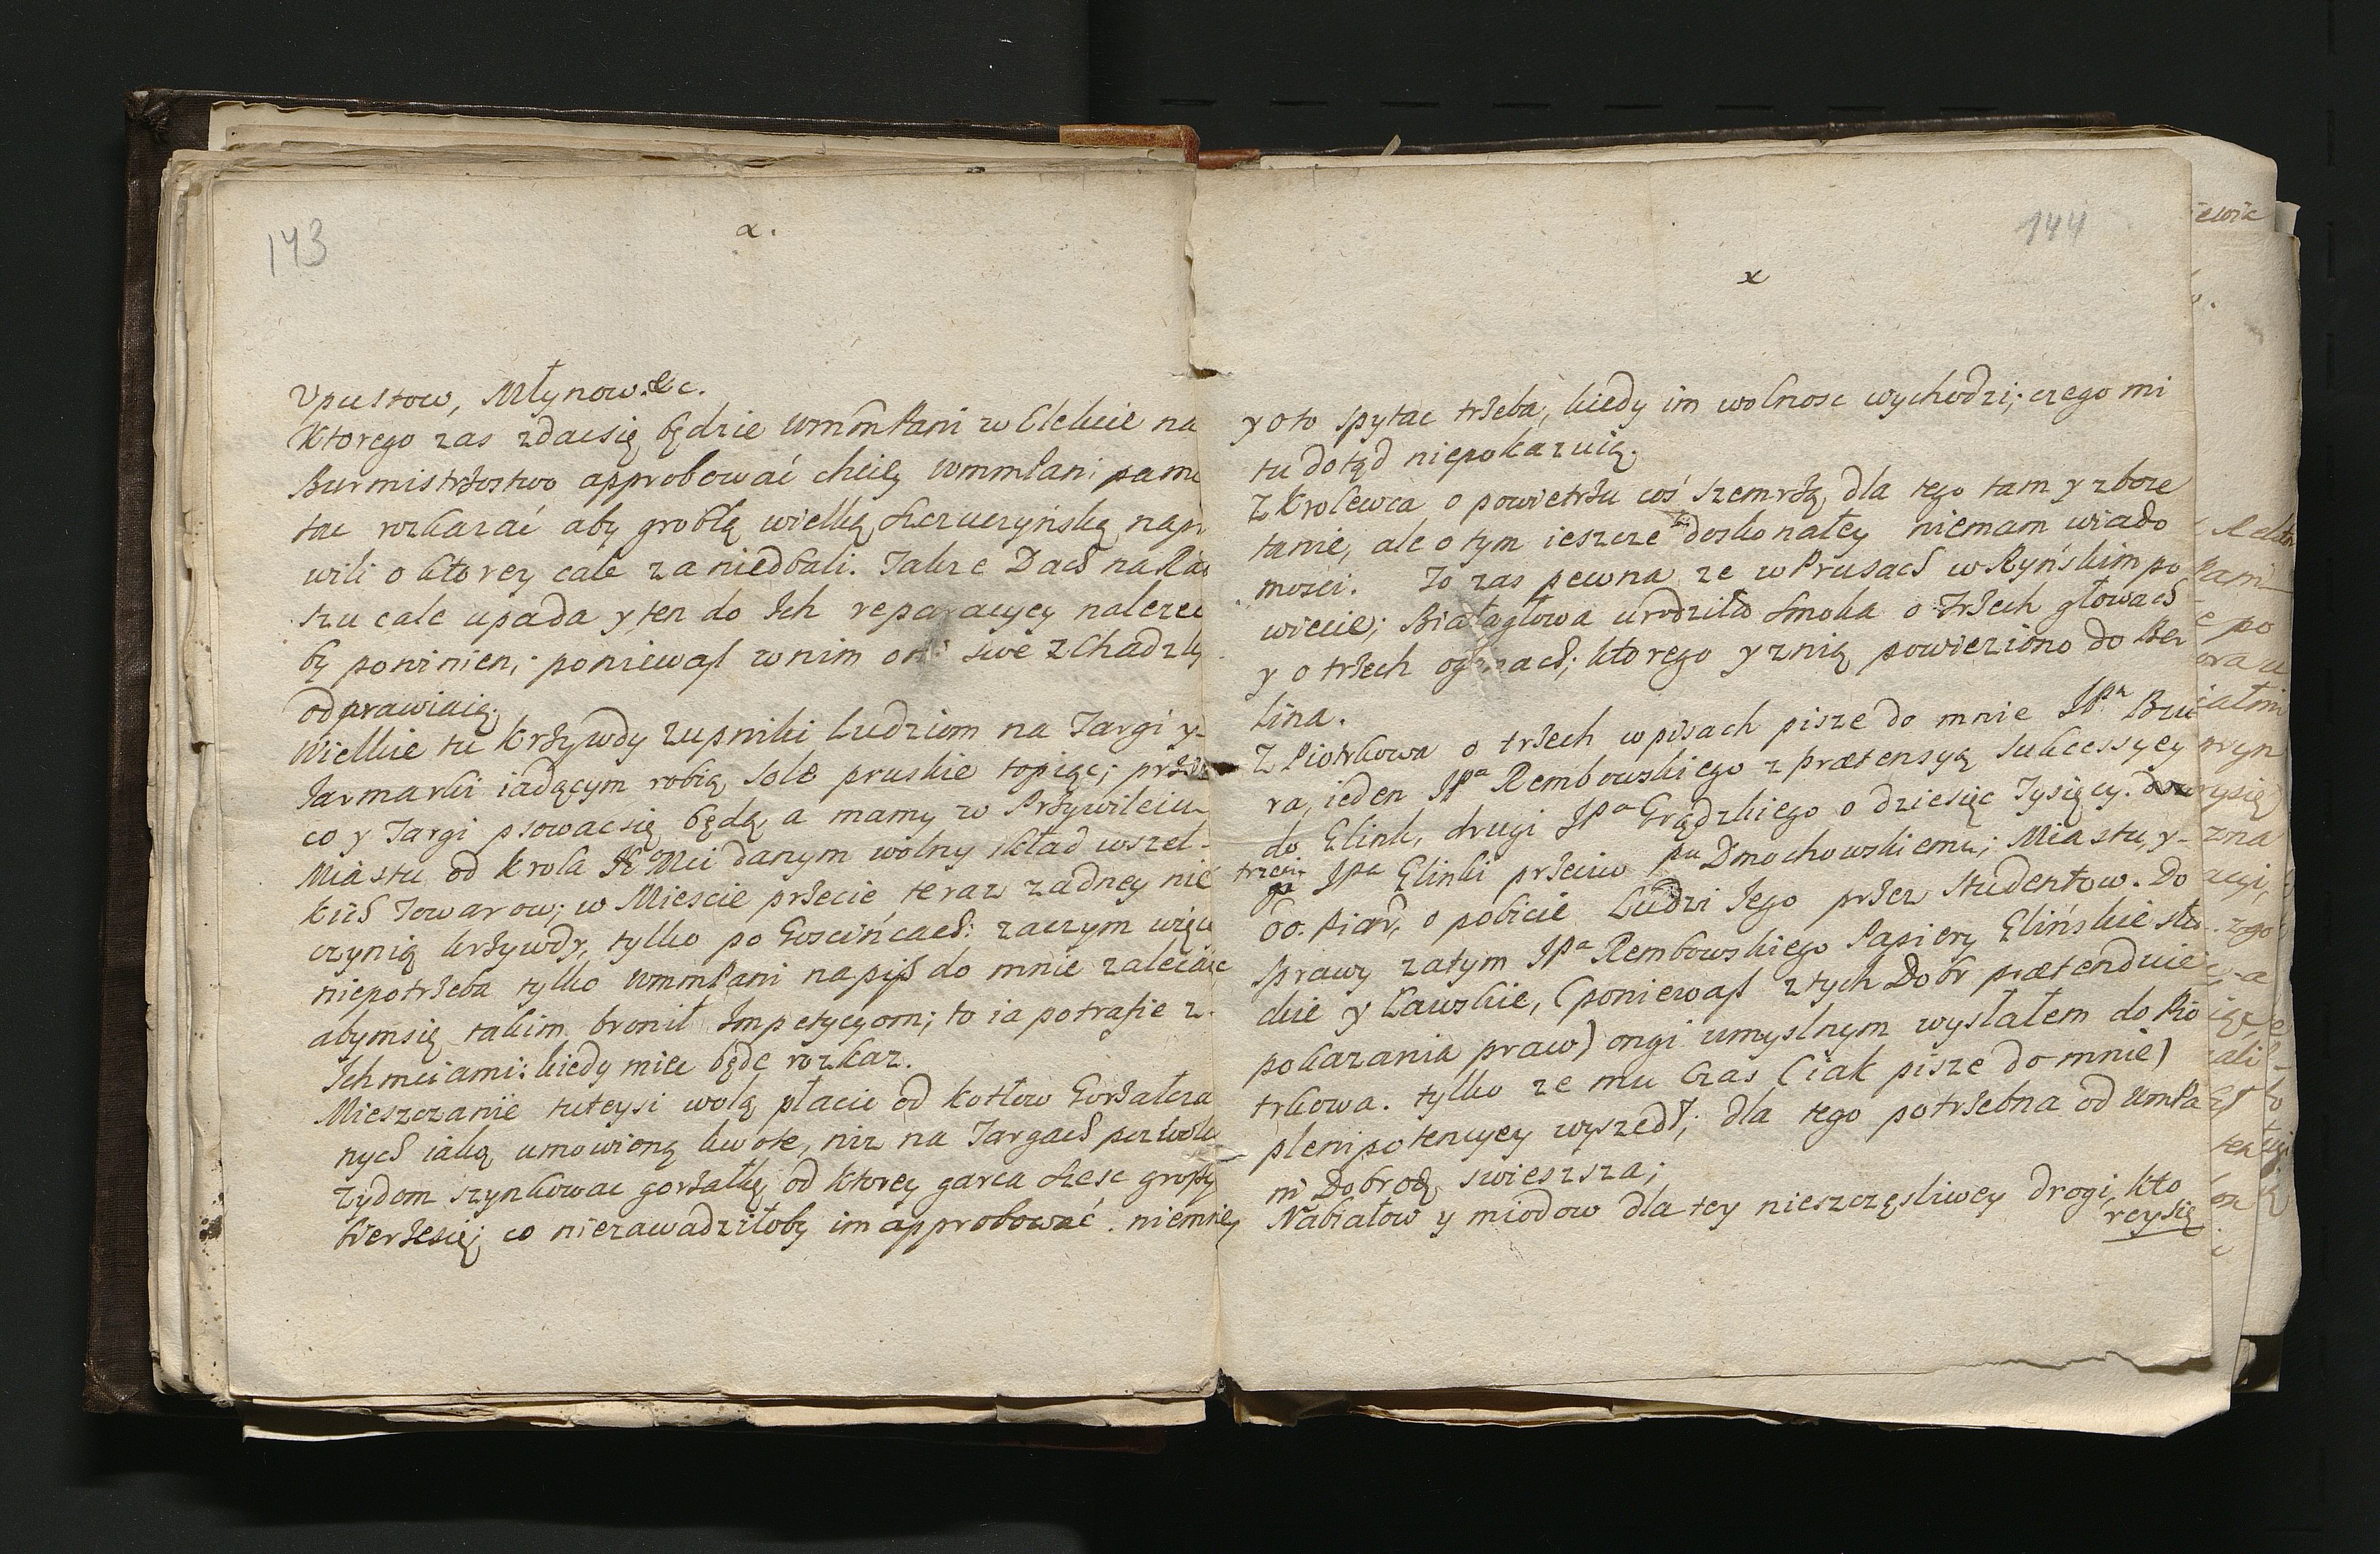 143
2.
Upustow, Młynow. &c.
Ktorego zas zdacsię będzie WmmPani w Elekcie na
Burmistrżostwo approbować chciey WmmPani pame
tac rozkazać aby groblą wielką Szczuczyńską nap
wili o ktorey cale zaniedbali. Takze Dach na Ra
szu cale upada y ten do Ich reparacyey nalezec
by powinien, poniewasz w nim oni swe zchadzky
odprawiaią.
Wielkie tu krżywdy zupniki Ludziom na Targi y
Jarmarki iadącym robią Sole pruskie topiąc; przez
co y Targi psowacsię będą, a mamy w Prżywileiu
Miastu od Krola JKoMci danym wolny skład wszel-
kich Towarow; w Miescie prżecie teraz zadney nie
czynią krżywdy, tylko po Goscińcach: zaczym więc
niepotrżeba tylko WmmPani napisz do mnie zalecaiąc
abymsię takim bronił Impetycyom; to ia potrafie z
Ichmciami: kiedy miec będę rozkaz.
Mieszczanie tuteysi wolą płacic od kotłow Gorżałcza
nych iaką umowioną kwotę, niz na Targach pozwolic
zydom szynkowac gorżałkę, od ktorey garca szesc groszy
bierżesię; co niezawadziłoby im approbować. niemniey
144
x
y oto spytac trżeba, kiedy im wolnosc wychodzi; czego mi
tu dotąd niepokazuią.
Z Krolewca o powietrżu coś szemrżą, dla tego tam y zboze
tanie, ale o tym ieszcze doskonałey niemam wiado
mosci. To zas pewna ze w Prusach w Ryńskim po
wiecie; Białagłowa urodziła Smoka o trżech głowach
y o trżech ogonach; ktorego y znią powieziono do Ber
lina.
Z Piotrkowa o trżech wpisach pisze do mnie JPan Bzu
ra, ieden JPa Rembowskiego z prætensyą sukcessyey
do Glink, drugi JPa Grądzkiego o dziesięc Tysięcy.
trzeci JPa Glinki prżeciw Pu Dmochowskiemu; Miastu, y
OO. Piar, o pobicie Ludzi Jego prżez Studentow. Do
Sprawy zatym JPa Rembowskiego Papiery Glińskie
y Ławskie, (poniewasz z tych Dobr prætenduie
pokazania praw) ongi umyslnym wysłałem do Pio
trkowa. tylko ze mu Czas (iak pisze do mnie)
plenipotencyey wyszedł; dla tego potrżebna od WmPa
ni Dobrodź swieszsza;
Nabiałow y miodow dla tey nieszczęsliwey drogi, kto
reysię